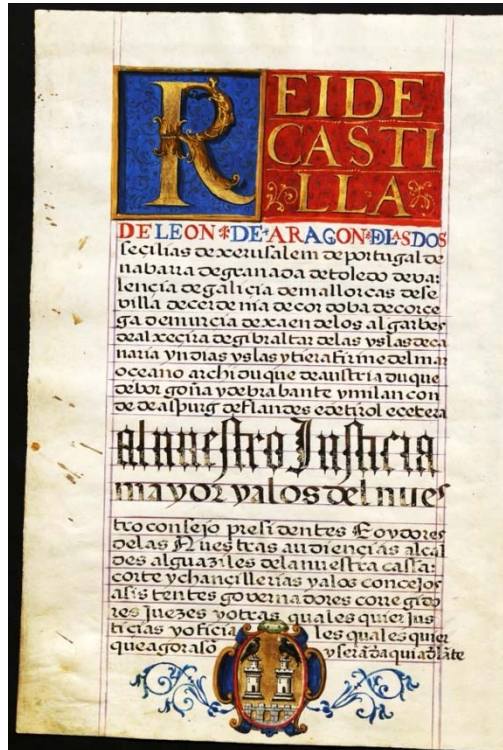 REI DE
CASTI
LLA
DE LEON DE ARAGON DE LAS DOS
seçilias de xerusalem de portugal de
nabarra de granada de toledo de va-
lençia de galiçia de mallorcas de se
villa de cerdenia de cordoba de corce
ga de murcia de xaen de los algarbes
de alxeçira de gibraltar de las yslas de ca
naria yndias yslas y tierafirme del mar
oceano archiduque de austria duque
de borgoña y de brabante y milan con
de de aspurg de flandes e de tirol ecetera
al nuestro Justicia
mayor y a los del nues
tro consejo presidentes E oydores
de las Nuestras audiençias alcal
des alguaziles de la nuestra cassa
corte y chançillerias y a los concejos
asistentes governadores corregido
res juezes y otras qualesquier jus
ticias y oficia les qualesquier
que agora so y seran